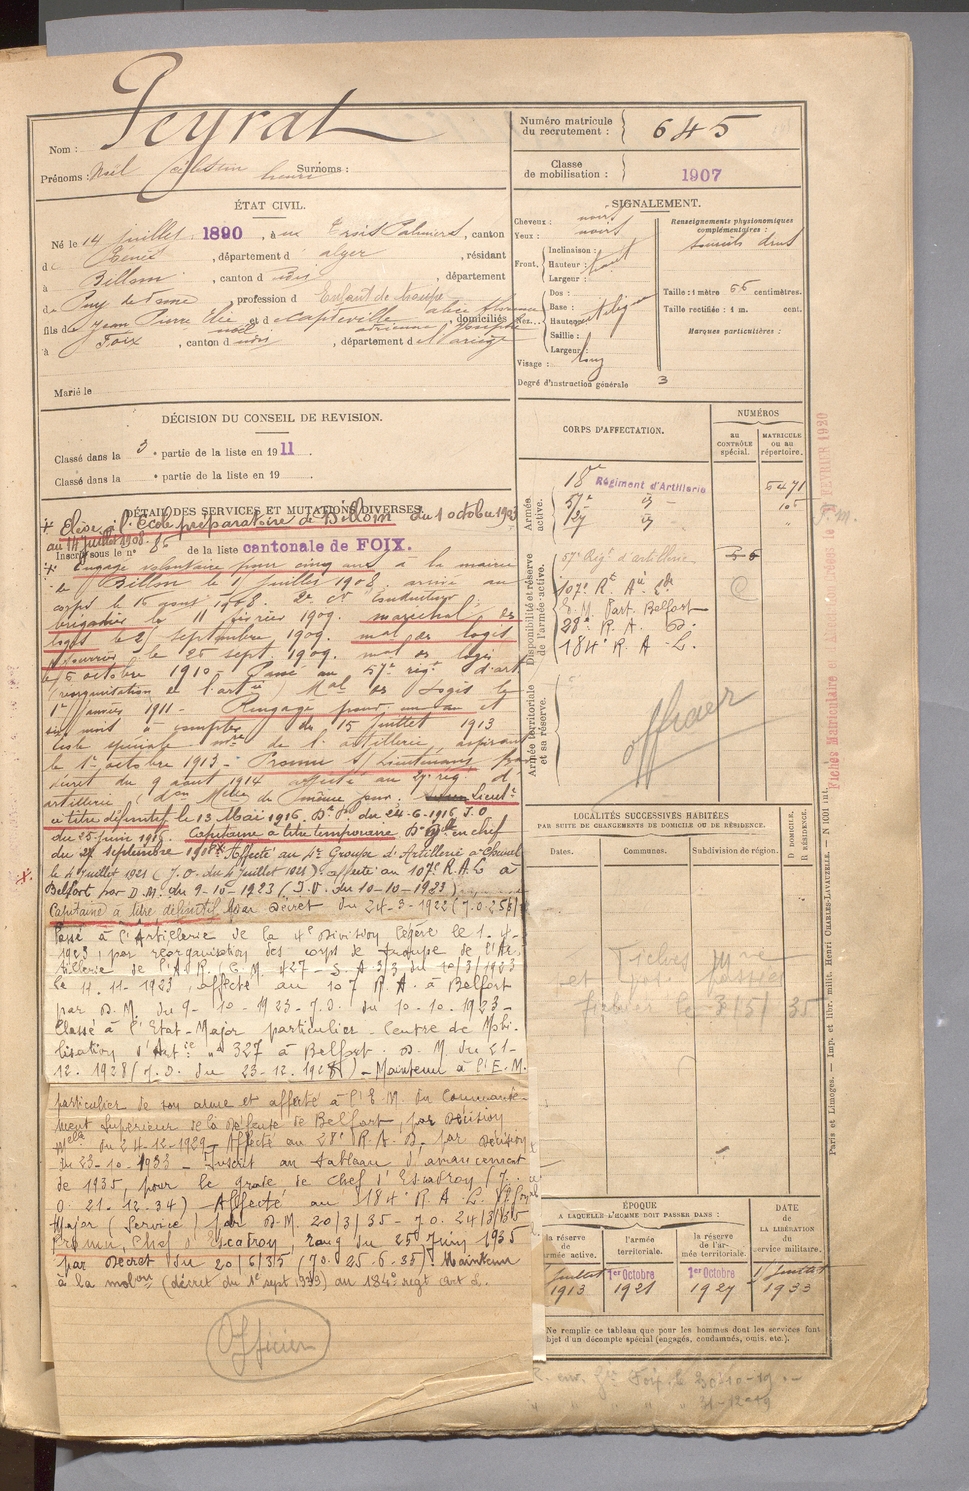 Nom : Peyrat
Prénoms : Noël Célestin henri Surnoms :
Numéro matricule du recrutement : 645
Classe de mobilisation : 1907
ÉTAT CIVIL.
Né le 14 juillet 1890, à Trois Palmiers, canton
d Ténès, département d alger, résidant
à Billom, canton d , département
du Puy de Dome, profession d Enfant de troupe
fils de Jean Pierre Elie noël et d Capteville alice adrienne , domiciliés
à Foix, canton d , département d l'ariège
Marié le
SIGNALEMENT.
Cheveux : noirs
Yeux : noirs
Front. Inclinaison :
Hauteur : haut
Largeur :
Nez. Dos :
Base :
Hauteur :
Saillie :
Largeur :
Visage : long
Degré d'instruction générale 3
Renseignements physionomiques complémentaires :
sourcils droits
Taille : 1 mètre 66 centimètres.
Taille rectifiée : 1 m. cent.
Marques particulières :
DÉCISION DU CONSEIL DE REVISION.
Classé dans la 3e partie de la liste en 1911.
Classé dans la e partie de la liste en 19 .
DÉTAIL DES SERVICES ET MUTATIONS DIVERSES.
Elève à l'École préparatoire de Billom du 1 octobre 1903
au 14 juillet 1908
Inscrit sous le n° 86 de la liste cantonale de FOIX.
Engagé volontaire pour cinq ans à la mairie
de Billom le 15 juillet 1908 arrivé au
corps le 16 aout 1908. 2e Cr Conducteur
brigadier le 11 février 1909. maréchal des
logis le 25 septembre 1909. mal des logis
fourrier le 25 sept. 1909. mal des logis
le 5 octobre 1910 - Passé au 57e régt d'art
(réorganisation de l'artie) Mal des Logis le
1er janvier 1911 - Rengagé pour un an et
six mois à compter du 15 juillet 1913
Ecole spéciale mre de l'artillerie, aspirant
le 1er octobre 1913 - Promu S/Lieutenant par
décret du 9 aout 1914 affecté au 27 rég. d'
artillerie (don Melle du même jour) Lieutt
à titre définitif le 13 Mai 1916. Dn Pl. du 24-6-1916 J.O
du 25 juin 1916. Capitaine à titre temporaire Dn Gal en chef
du 27 septembre 1918 Affecté au 4e Groupe d'Artillerie à Cheval
le 4 Juillet 1921 (J.O. du 4 Juillet 1921). affecté au 107e R.A.L à
Belfort par D.M. du 9-10-1923 (J.O. du 10-10-1923)
Capitaine à titre définitif par Décret du 24-3-1922 (J.O.
Passé à l'Artillerie de la 4e Division légère le 1-4-
1923, par réorganisation des corps de troupe de l'Ar-
tillerie de l'A.R., C.M. 427 - S.A 3/3 du 10/3/1923
Le 11.11-1923, affecté au 107 R.A. à Belfort
par D.M. du 9-10-1923-J.O. du 10-10-1923-
Classé à l'Etat-Major particulier - Centre de Mobi-
lisation d'Artie n° 327 à Belfort. D.M. du 21-
12.1928 (J.O. du 23-12.1928) - Maintenu à l'E.M.
particulier de son arme et affecté à l'E.M. du Commande-
ment Supérieur de la Défense de Belfort, par Décision
Melle du 24-12-1929 - Affecté au 28e R.A.D. par Décision
du 23-10-1933 - Inscrit au tableau d'avancement
de 1935, pour le grade de Chef d'Escadron (J.
O. 21.12.34) - Affecté au 184e R.A.L.
Major (Service) par D.M. 20/3/35 - J.O. 24/3/35
Promu Chef d'Escadron, rang du 25 Juin 1935
par Décret du 20/6/35 (J.O. 25.6.35). Maintenu
à la mobon (décret du 1er sept 1939) au 184e régt art d.
Officier
CORPS D'AFFECTATION.
NUMÉROS
au CONTRÔLE spécial.
MATRICULE ou au répertoire.
Armée active.
18e Régiment d'Artillerie 5471
57e id 105
27 id "
Disponibilité et réserve de l'armée active.
57e Régt d'artillerie
107e Rt Aie Lde
E.M. Part. Belfort
28e R.A. D.
184e R.A.L.
Armée territoriale et sa réserve.
officier
LOCALITÉS SUCCESSIVES HABITÉES
PAR SUITE DE CHANGEMENTS DE DOMICILE OU DE RÉSIDENCE.
Dates. Communes. Subdivision de région. D DOMICILE. R RÉSIDENCE.
Fiches Mre
et passées
fichier le 3/5/35
ÉPOQUE
A LAQUELLE L'HOMME DOIT PASSER DANS :
la réserve de armée active. l'armée territoriale. la réserve de l'armée territoriale. DATE de LA LIBÉRATION du service militaire.
juillet 1913
1er Octobre 1921
1er Octobre 1927
1 juillet 1933
Ne remplir ce tableau que pour les hommes dont les services font
objet d'un décompte spécial (engagés, condamnés, omis, etc.).
Foix le 30-10-19
31-12-19
FÉVRIER 1920
Paris et Limoges. — Imp. et libr. milit. Henri CHARLES-LAVAUZELLE.